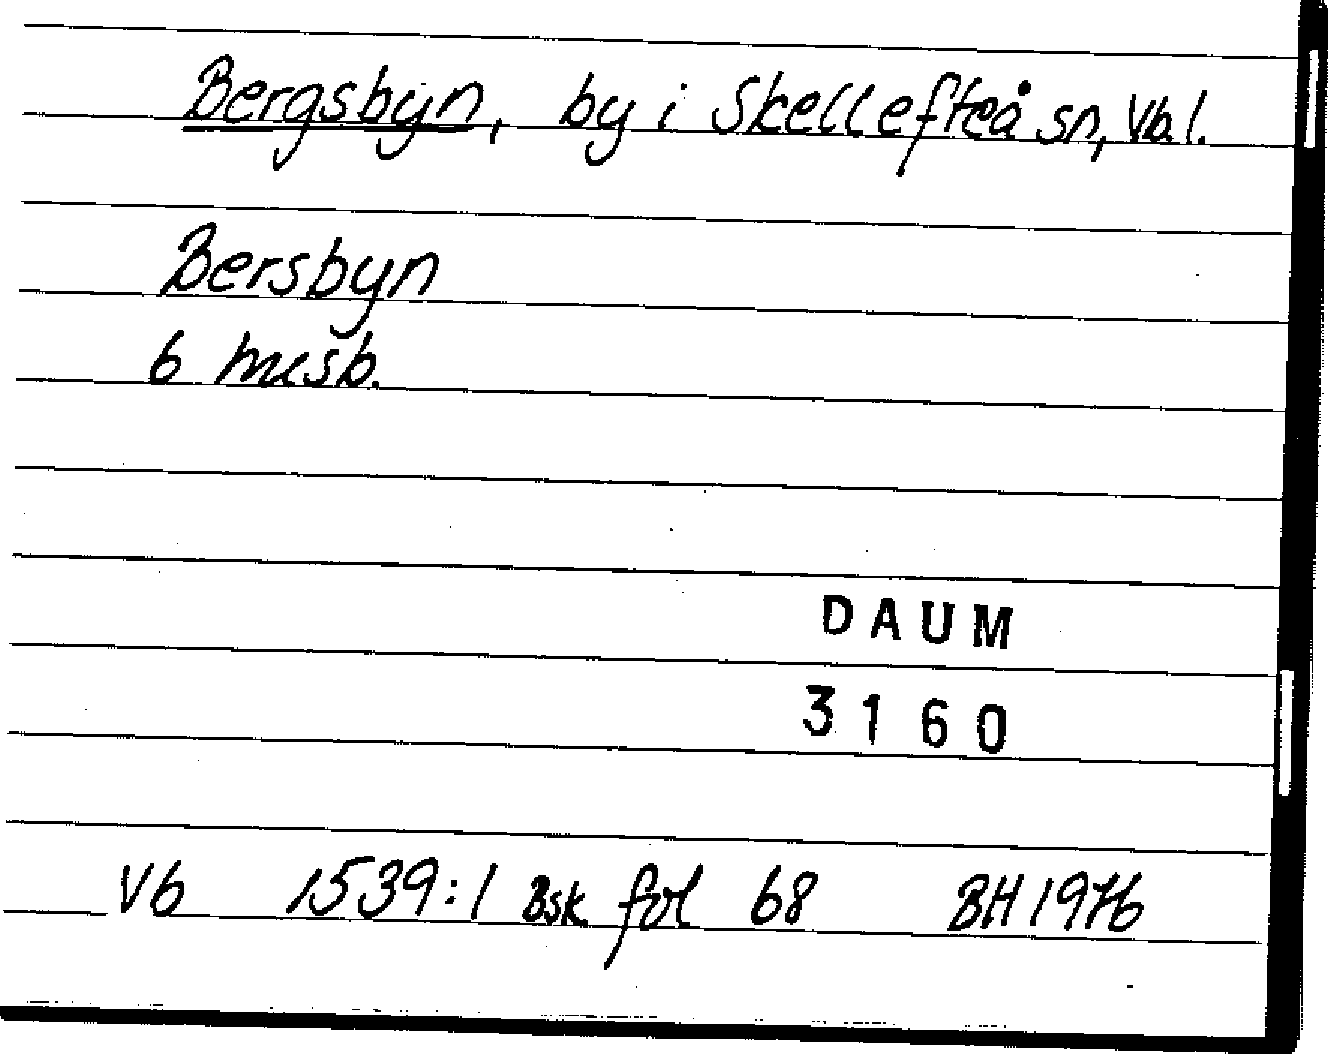 Bergsbyn, by i Skellefteå sn, Vb. l.
Bersbyn
6 mesb.
DAUM
3160
Vb 1539:1 Bsk. fol 68 BH 1976